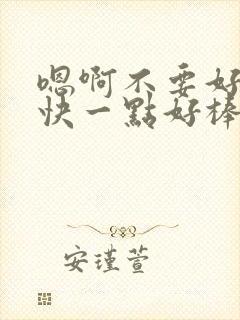 嗯啊不要好
快一點好棒
安瑾萱